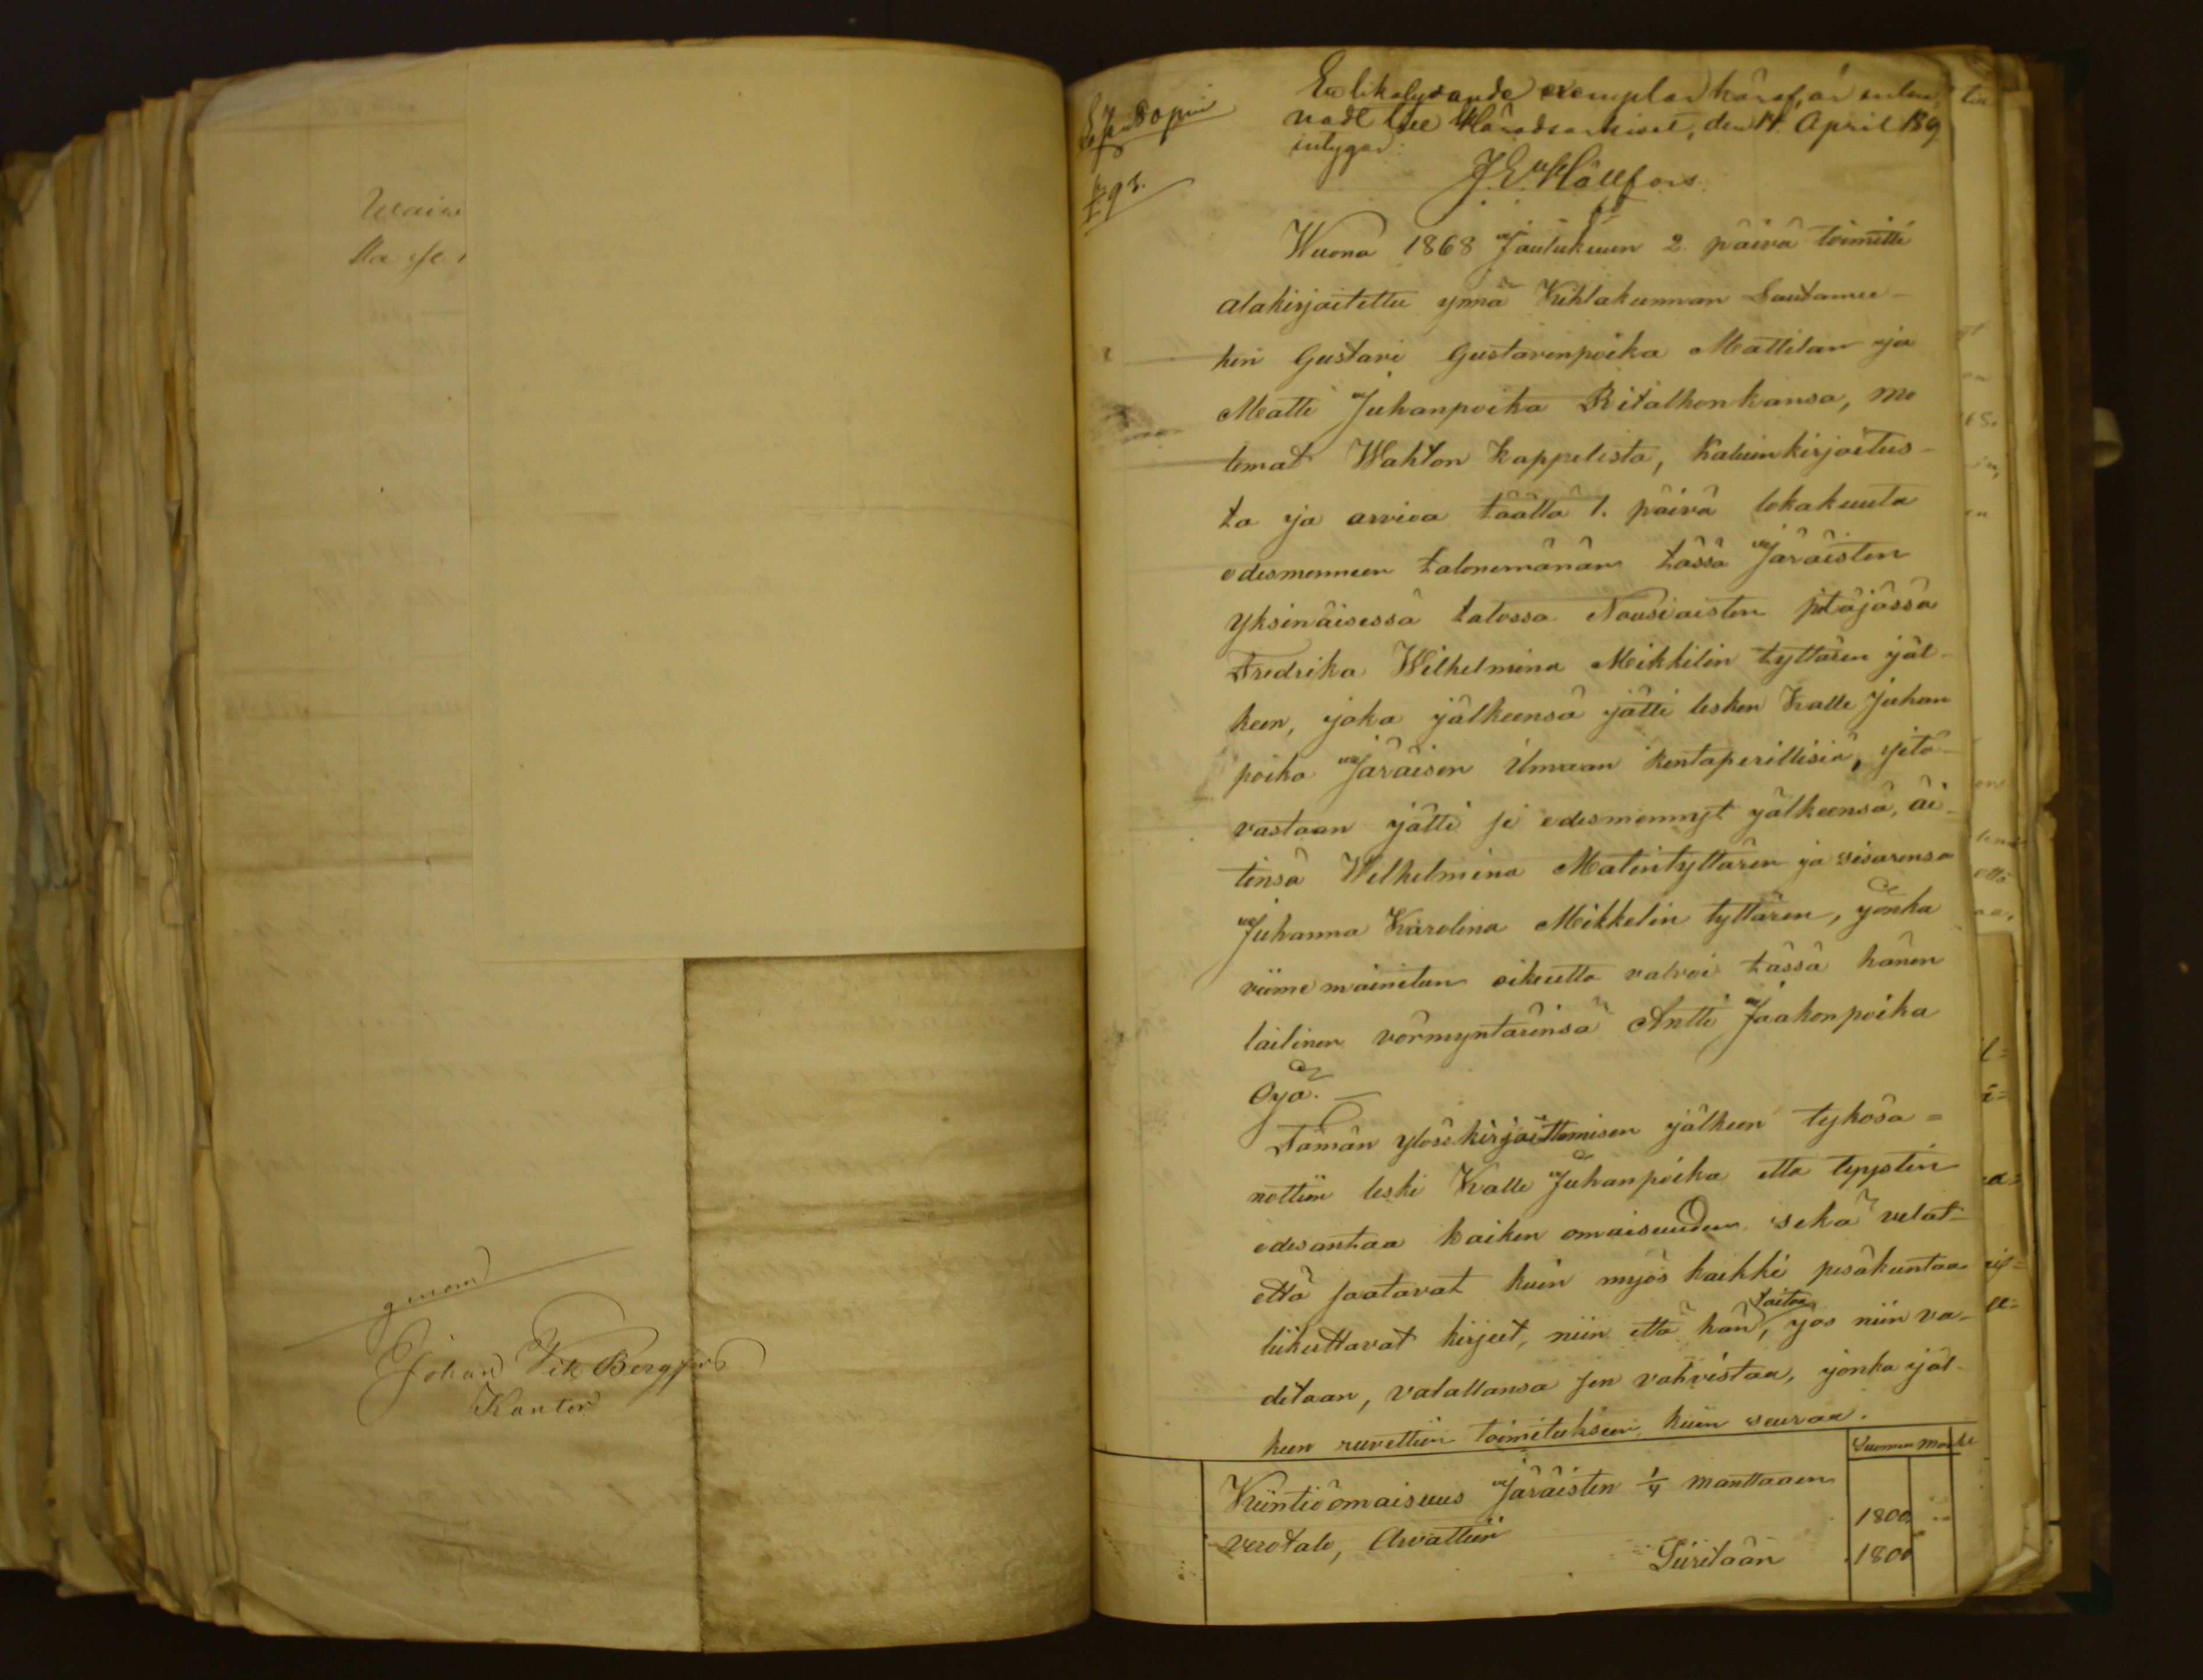 Ett likalydande exemplar häraf, är inlem-
nadt till Häradsarkivet, den 14 April 189
intygar:
J. E. Hällfors
Wuona 1868 Joulukuun 2. päivä toimitti
alakirjoitettu ynnä Kihlakunnan Lautamie-
hen Gustavi Gustavinpoika Mattilan ja
Matti Juhanpoika Ritalhon kansa, mo
lemat Wahton kappelista, kaluinkirjoitus-
ta ja arvioa täällä 1. päivä lokakuuta
edesmenneen talonemänän tässä Järäisten
yksinäisessä talossa Nousiaisten pitäjässä
Fredrika Wilhelmina Mikkilin tyttären jäl-
keen, joka jälkeensä jätti lesken Kalle Juhan
poika Järäisen ilmaan rintaperillisiä, sitä-
vastaan jätti se edesmennyt jälkeensä, äi-
tinsä Wilhelmina Matintyttären ja sisarensa
Juhanna Karolina Mikkelin tyttären, jonka
viime mainitun oikeutta valvoi tässä hänen
lailinen vörmyntärinsä Antti Jaakonpoika
Oja. —
Tämän ylösskirjoittamisen jälkeen tykösa=
nottiin leski Kalle Juhanpoika että
edesantaa kaiken omaisuuden sekä velat
että saatavat kuin myös kaikki pesäkuntaa
liikuttavat kirjeet, niin että hän taitaa, jos niin va-
ditaan, valallansa sen vahvistaa, jonka jäl-
keen ruvettiin toimitukseen, kuin seuraa.
Suomen Markk
Kiinteöomaisuus Järäisten 1/4 manttaaen
verotalo, Arvattiin 1800 ..
Siiritään 1800
Wain
lla se
genom
Johan Vik. Bergfors
Kantor